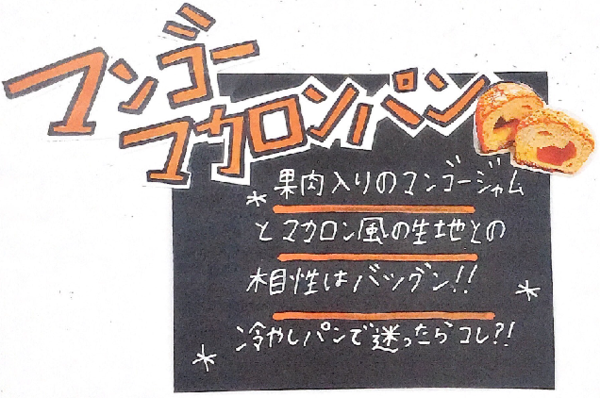 マンゴー
マカロンパン
果肉入りのマンゴージャム
とマカロン風の生地との
相性はバツグン!!
冷やしパンで迷ったらコレ?!